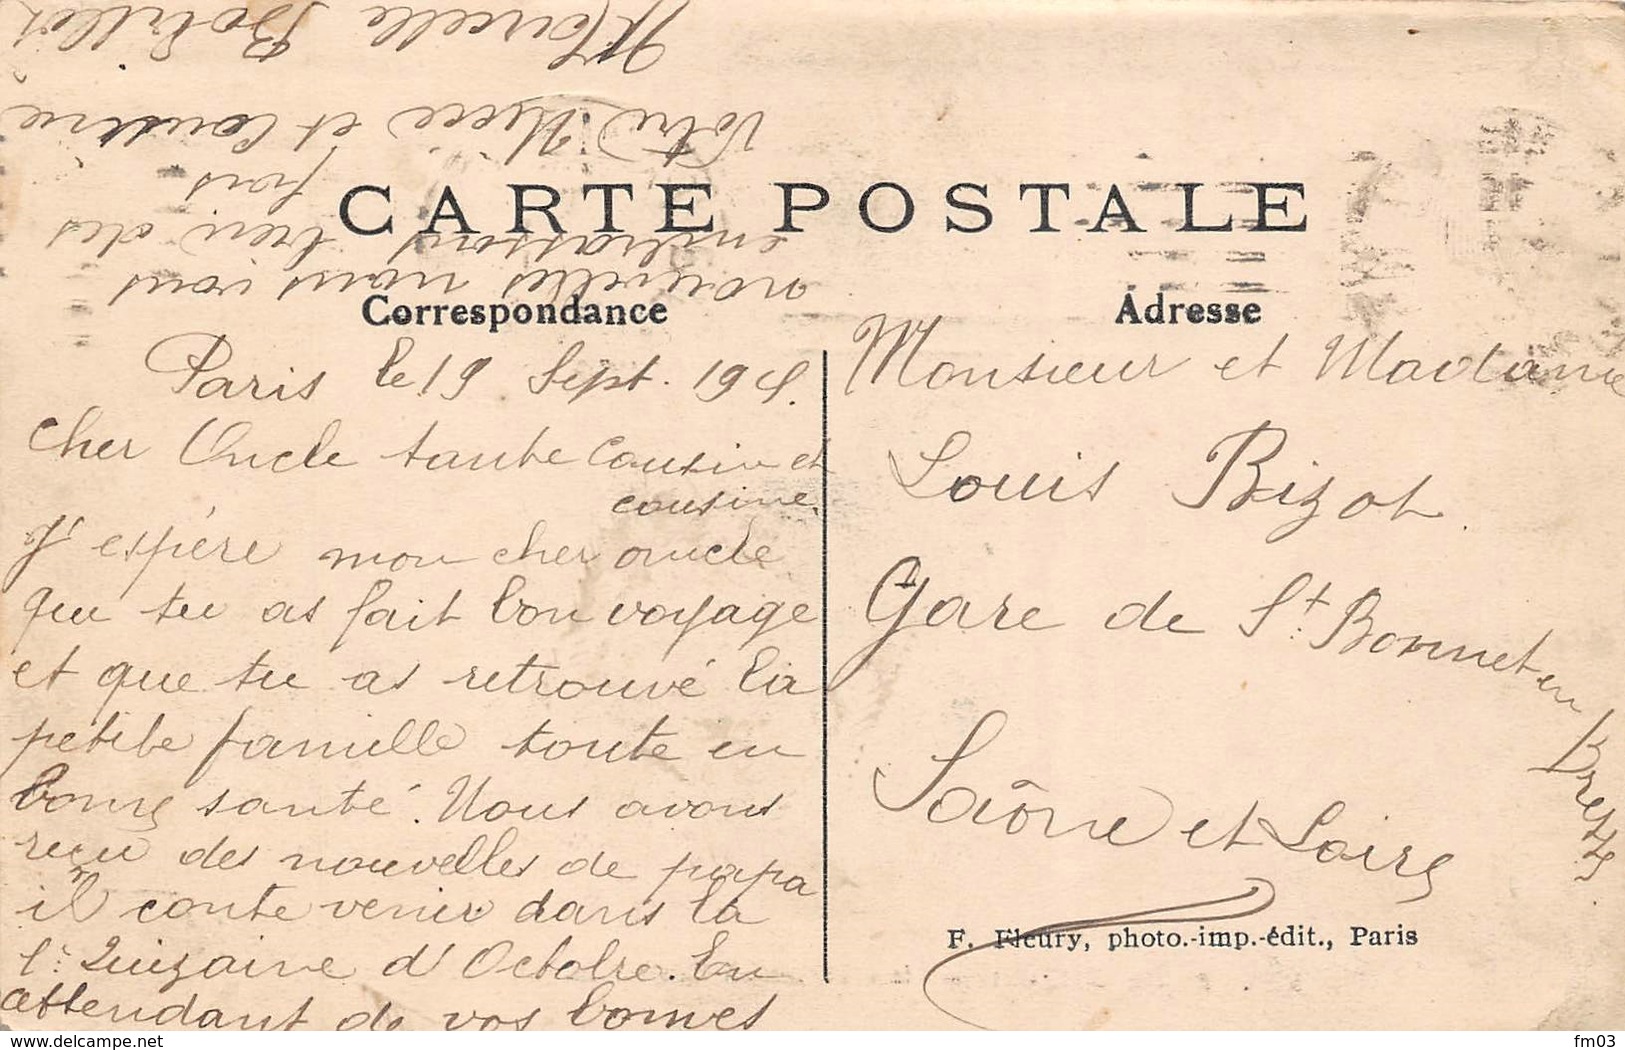 CARTE POSTALE
Correspondance
Adresse
Paris le 19 Sept. 19
cher Oncle tante cousin et
cousine.
J'espère mon cher oncle
que tu as fait bon voyage
et que tu as retrouvé la
petite famille toute en
bonne santé. Nous avons
reçu des nouvelles de papa
il conte venir dans la
1e Quizaine d'Octobre. En
attendant de vos bonnes
nouvelles nous vous
embrassons bien des
fois
Votre Nièce et Cousine
Marcelle
Monsieur et Madame
Louis Bizot
Gare de St. Bonnet en
Bresse
Saône et Loire
F. Fleury, photo.-imp.-édit., Paris
www.delcampe.net
fm03